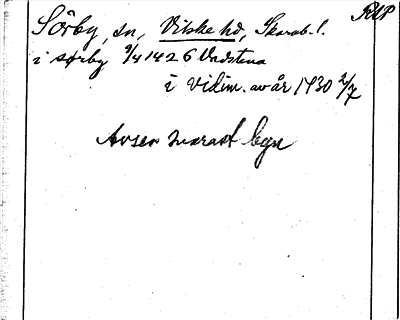 Sörby, sn, Vilske hd, Skarab. l. RAP
i sørby 9/4 1426 Vadstena
i vidim. av år 1430 2/7
Avser svarast byn